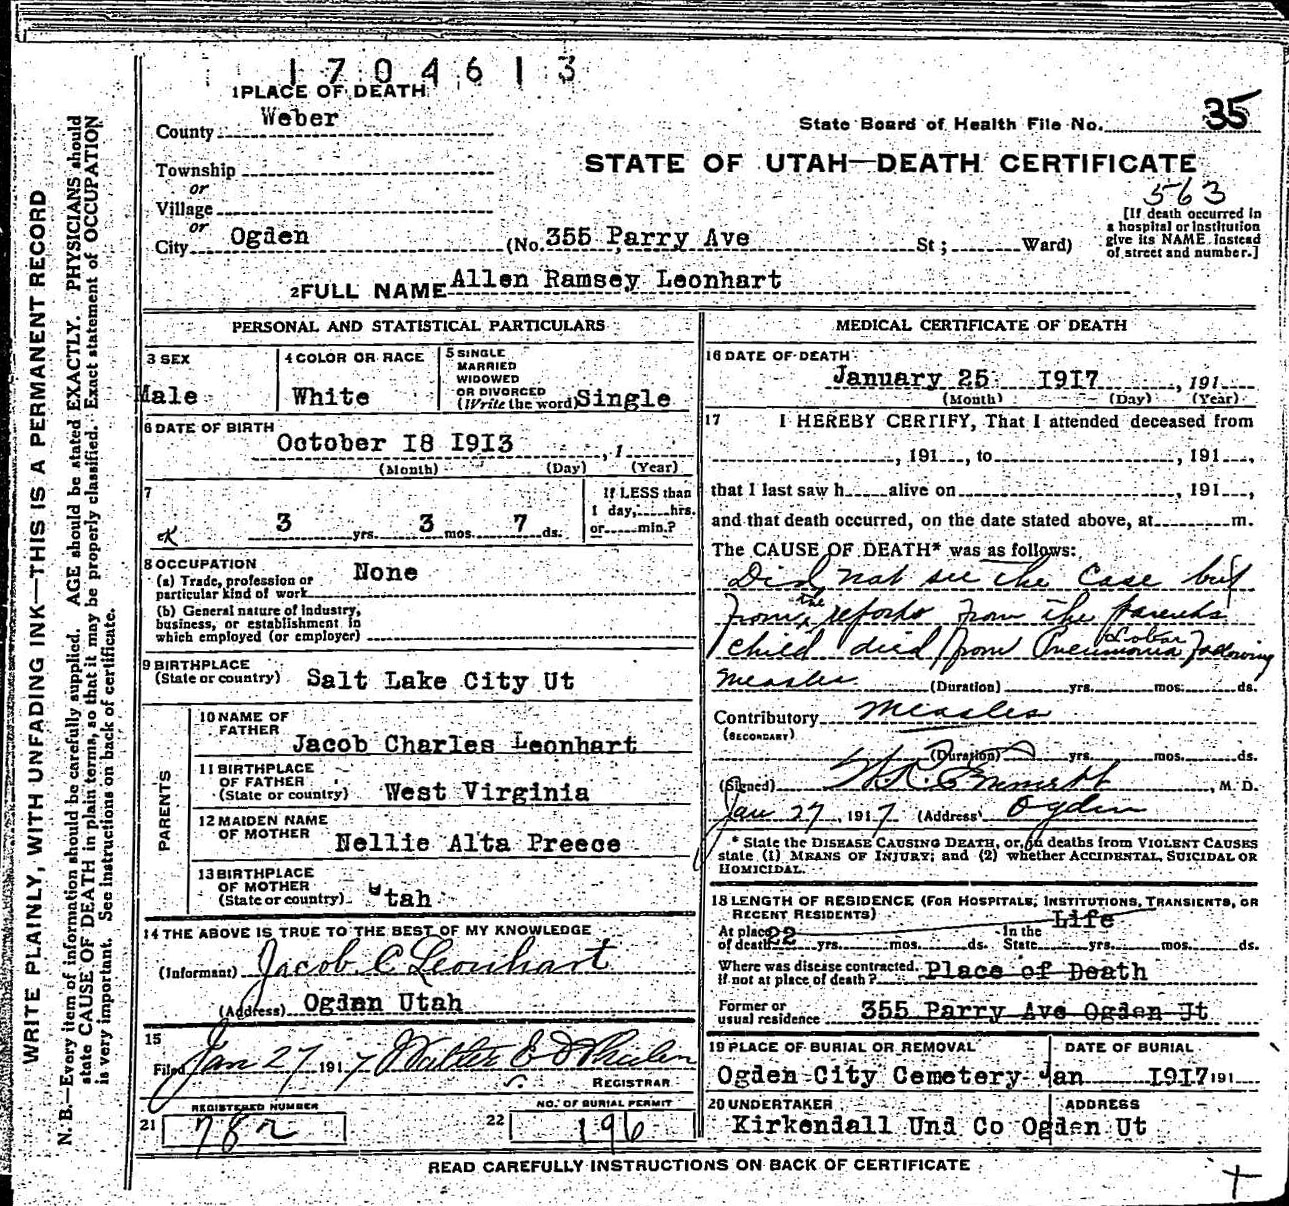 1704613
1 PLACE OF DEATH
County Weber
State Board of Health File No. 35
STATE OF UTAH—DEATH CERTIFICATE
563
Township
or
Village
or
City Ogden (No. 355 Parry Ave St; Ward)
[If death occurred in
a hospital or institution
give its NAME instead
of street and number.]
2 FULL NAME Allen Ramsey Leonhart
PERSONAL AND STATISTICAL PARTICULARS
3 SEX
Male
4 COLOR OR RACE
White
5 SINGLE
MARRIED
WIDOWED
OR DIVORCED
(Write the word) Single
6 DATE OF BIRTH
October 18 1913 , 1
(Month) (Day) (Year)
7
3 yrs. 3 mos. 7 ds.
If LESS than
1 day, hrs.
or min.?
8 OCCUPATION
(a) Trade, profession or
particular kind of work None
(b) General nature of industry,
business, or establishment in
which employed (or employer)
9 BIRTHPLACE
(State or country) Salt Lake City Ut
PARENTS
10 NAME OF
FATHER
Jacob Charles Leonhart
11 BIRTHPLACE
OF FATHER
(State or country) West Virginia
12 MAIDEN NAME
OF MOTHER
Nellie Alta Preece
13 BIRTHPLACE
OF MOTHER
(State or country) Utah
14 THE ABOVE IS TRUE TO THE BEST OF MY KNOWLEDGE
(Informant) Jacob C Leonhart
(Address) Ogden Utah
15
Filed Jan 27 1917 Walter E Whalen
REGISTRAR
REGISTERED NUMBER
21 782
NO. OF BURIAL PERMIT
22 196
MEDICAL CERTIFICATE OF DEATH
16 DATE OF DEATH
January 25 1917 , 191
(Month) (Day) (Year)
17 I HEREBY CERTIFY, That I attended deceased from
, 191 , to , 191 ,
that I last saw h alive on , 191 ,
and that death occurred, on the date stated above, at m.
The CAUSE OF DEATH* was as follows:
Did not see the Case but
from the reports from the parents
child died from Lobar Pneumonia following
Measles (Duration) yrs. mos. ds.
Contributory Measles
(SECONDARY)
(Duration) yrs. mos. ds.
(Signed) , M. D.
Jan 27, 1917 (Address) Ogden
* State the DISEASE CAUSING DEATH, or, in deaths from VIOLENT CAUSES
state (1) MEANS OF INJURY; and (2) whether ACCIDENTAL, SUICIDAL OR
HOMICIDAL.
18 LENGTH OF RESIDENCE (FOR HOSPITALS, INSTITUTIONS, TRANSIENTS, OR
RECENT RESIDENTS)
At place
of death 22 yrs. mos. ds. In the State Life yrs. mos. ds.
Where was disease contracted,
if not at place of death? Place of Death
Former or
usual residence 355 Parry Ave Ogden Ut
19 PLACE OF BURIAL OR REMOVAL
Ogden City Cemetery
DATE OF BURIAL
Jan 1917 191
20 UNDERTAKER
ADDRESS
Kirkendall Und Co Ogden Ut
READ CAREFULLY INSTRUCTIONS ON BACK OF CERTIFICATE
WRITE PLAINLY, WITH UNFADING INK—THIS IS A PERMANENT RECORD
N. B.—Every item of information should be carefully supplied. AGE should be stated EXACTLY. PHYSICIANS should
state CAUSE OF DEATH in plain terms, so that it may be properly classified. Exact statement of OCCUPATION
is very important. See instructions on back of certificate.